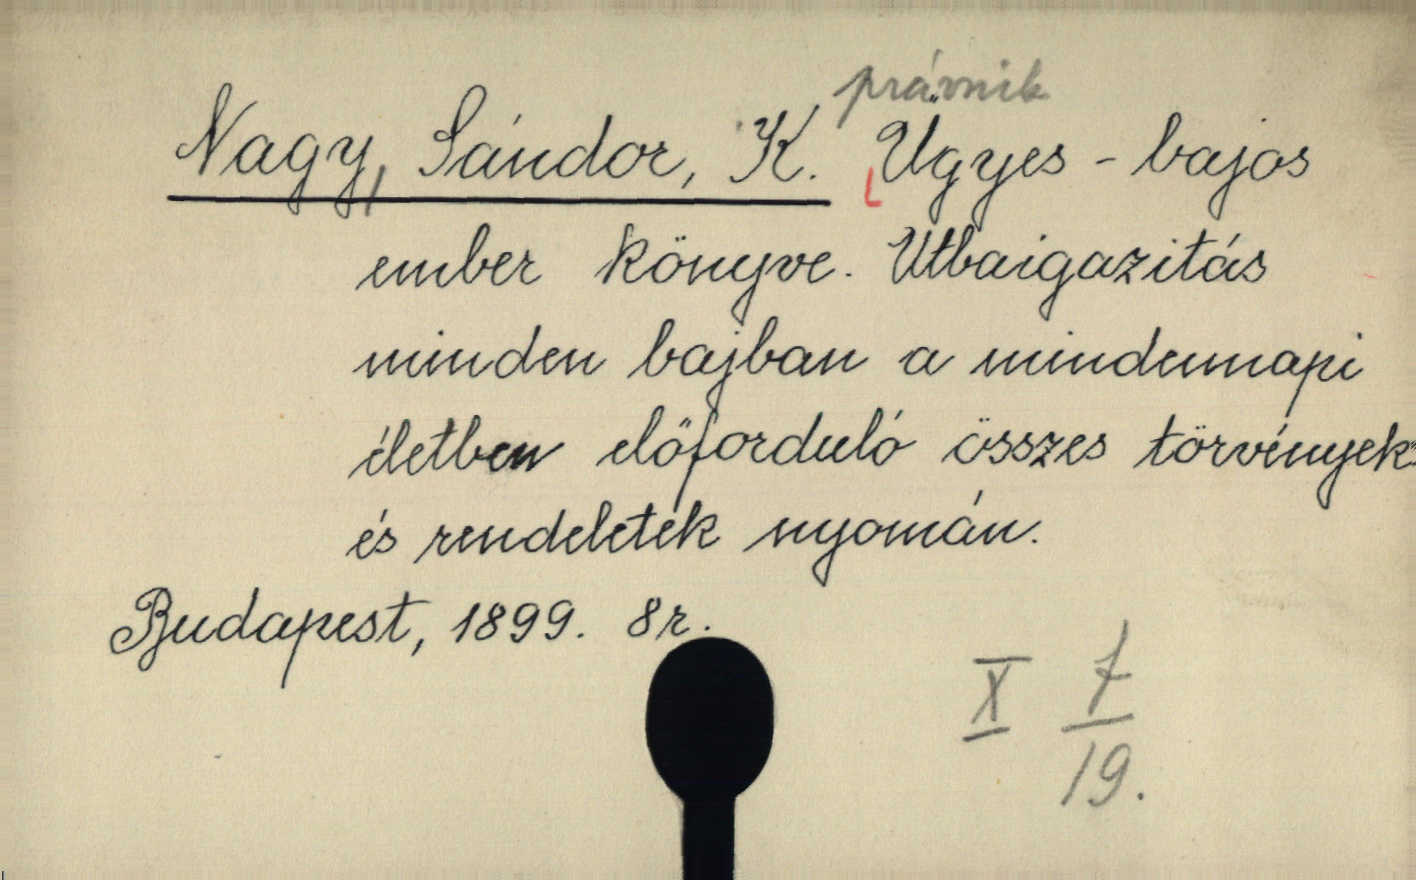 právnik
Nagy, Sándor, K. Ügyes - bajos
ember könyve. Utbaigazitás
minden bajban a mindennapi
életben előforduló összes törvények
és rendeletek nyomán.
Budapest, 1899. 8r.
X 7
19.